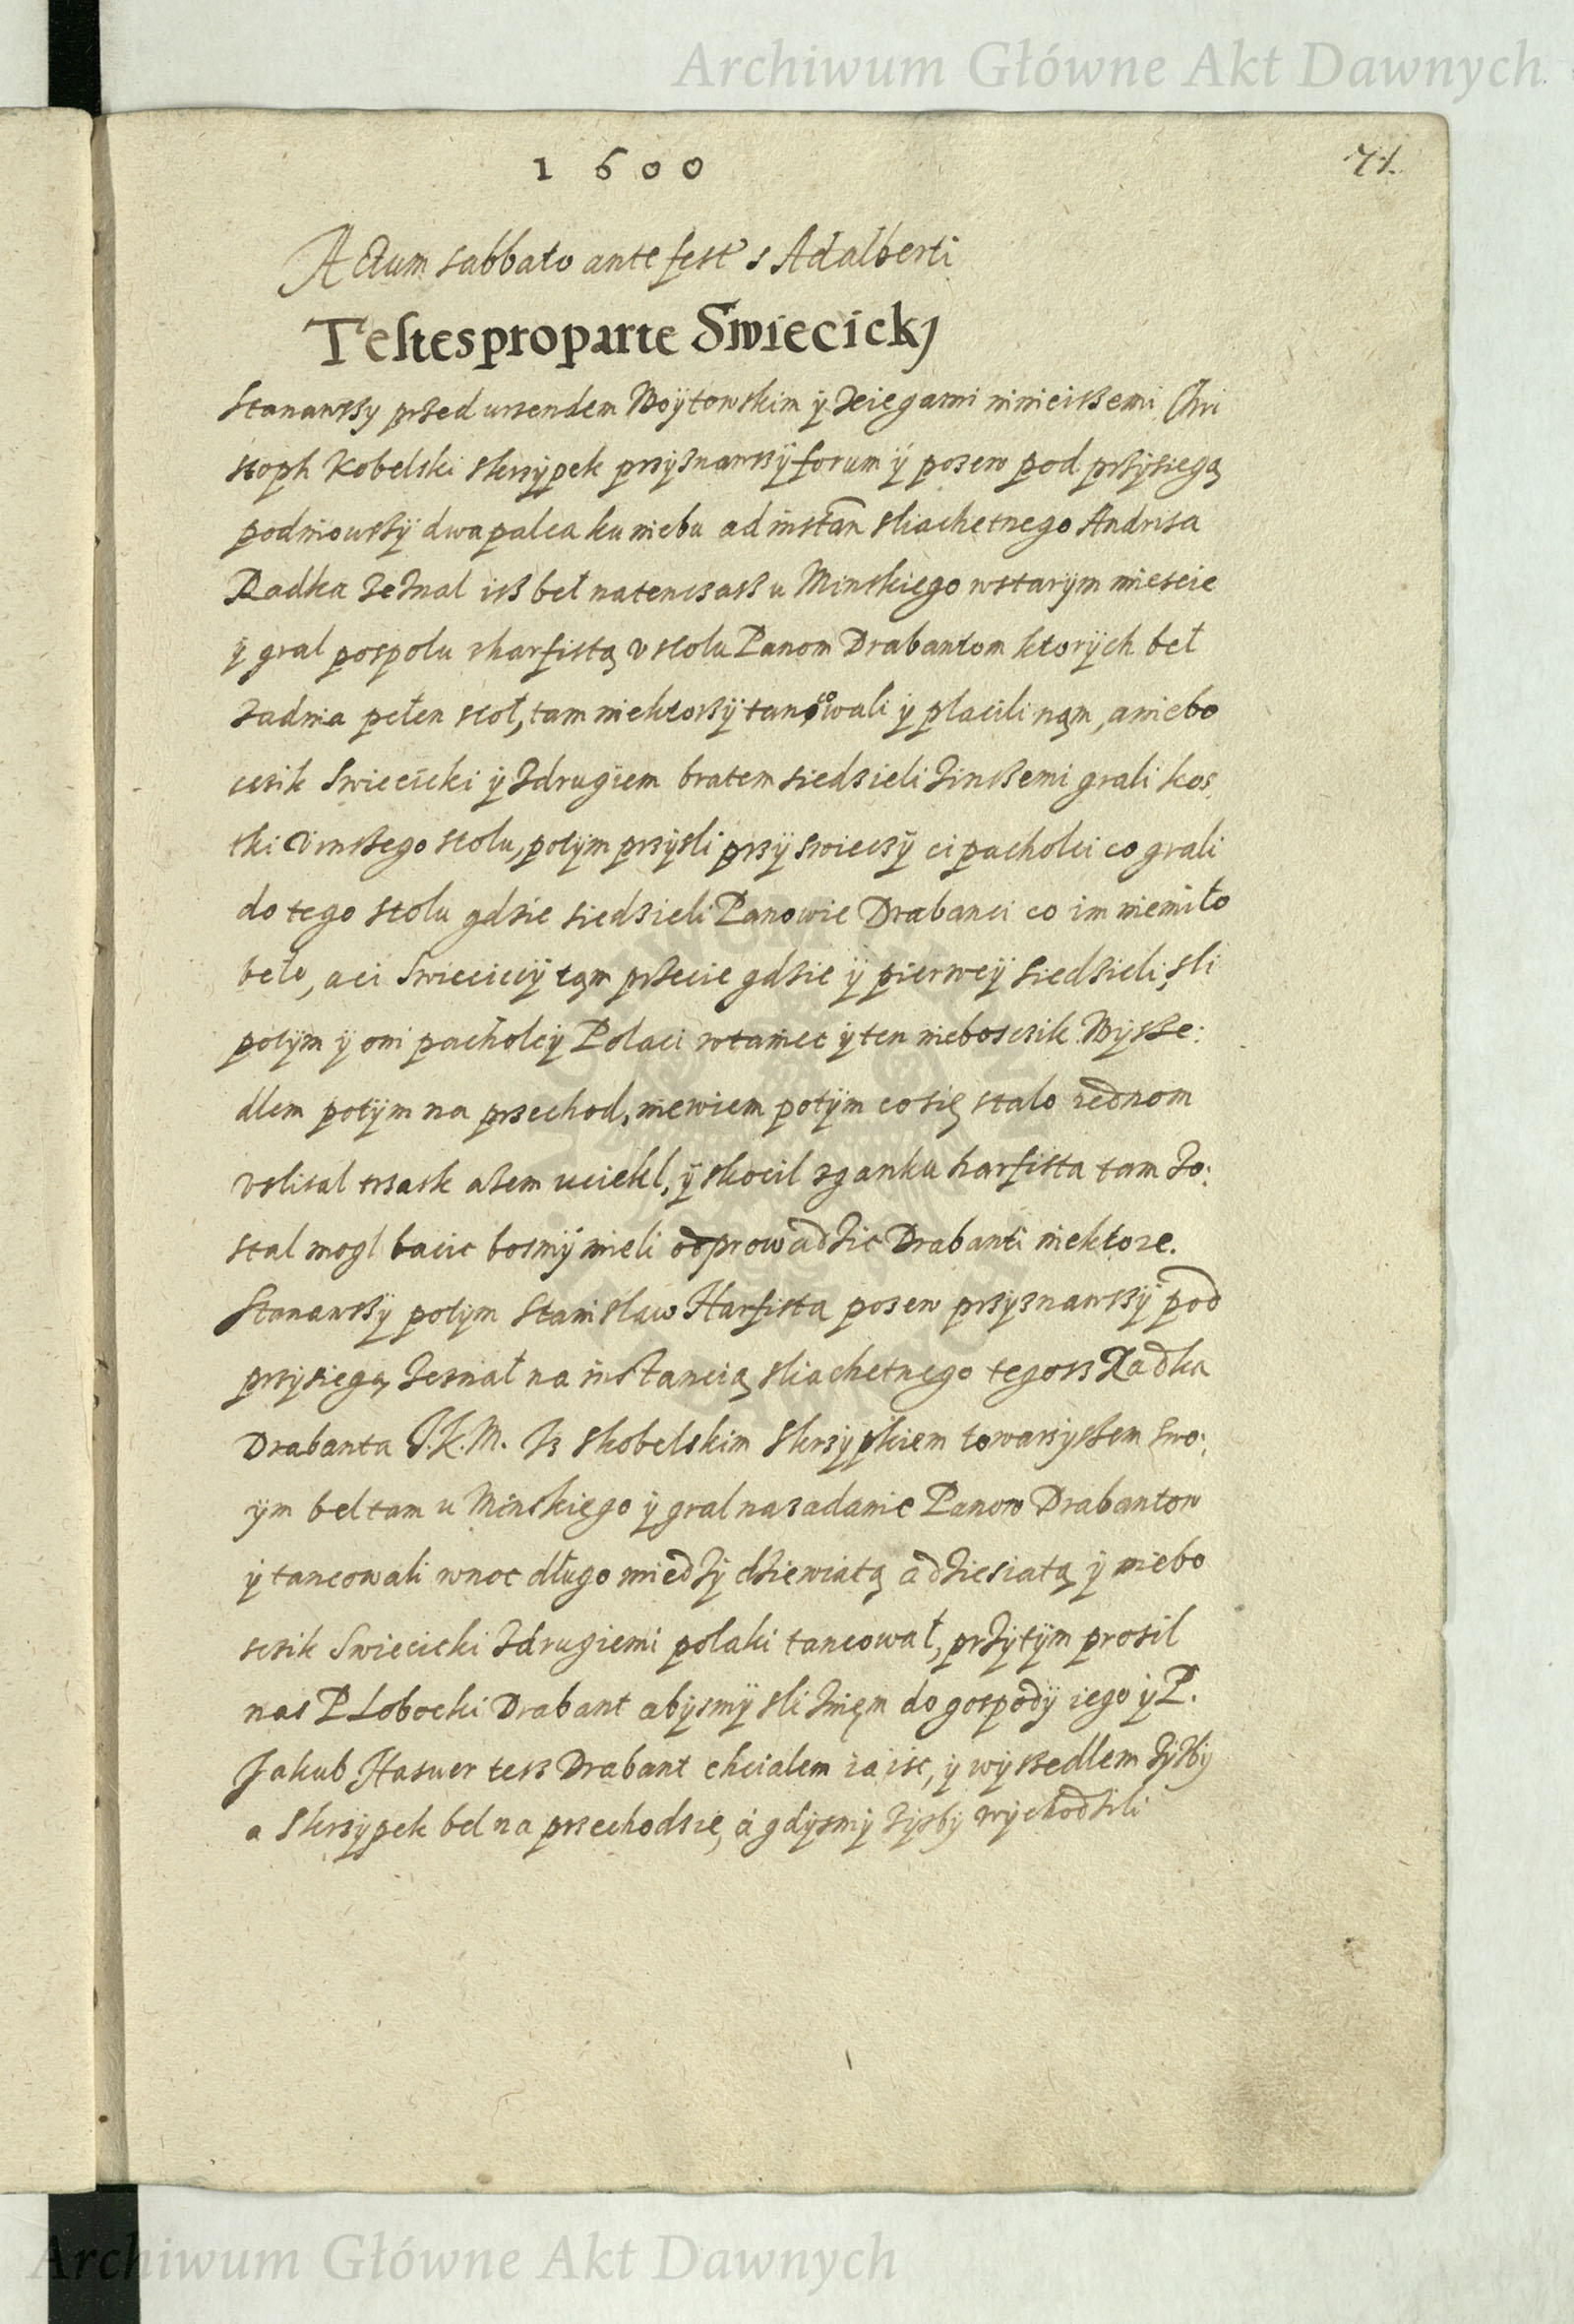 Archiwum Główne Akt Dawnych
1600
71.
Actum sabbato ante fest s Adalberti
Testes pro parte Swiecickj
Stanawszy przed urzendem Woÿtowskim ÿ xiegami ninieiszemi Chri
stoph Kobelski skrzÿpek przÿznawszÿ forum ÿ pozew pod przÿsiegą
podniowszÿ dwa palca ku niebu ad instan sliachetnego Andrisa
Radka zeznal isz beł natenczasz u Minskiego w starÿm miescie
ÿ gral pospolu z harfistą v stolu Panom Drabantom ktorÿch beł
zadnia pełen stoł, tam niektorzÿ tancowali ÿ placili nąm, a niebo
czik Swiecicki ÿ z drugiem bratem siedzieli z inszemi grali kos
tki v inszego stolu, potÿm przÿsli przÿ swieczÿ ci pacholci co grali
do tego stolu gdzie siedzieli Panowie Drabanci co im niemiło
beło, a ci Swieciccÿ tąm przecie gdzie ÿ pierweÿ siedzieli, sli
potÿm ÿ oni pacholcÿ Polaci w taniec ÿ ten nieboszczik Wÿsze:
dlem potÿm na przechod, niewiem potÿm co się stalo iednom
vslisal trzask azem uciekl, ÿ skocil z ganku harfista tam zo:
stal mogl bacic bosmÿ mieli odprowadzic Drabanti niektore.
Stanawszÿ potÿm Stanislaw Harfista pozew przÿznawszÿ pod
przÿsiegą zeznał na instancią sliachetnego tegosz Radka
Drabanta J.K.M. Iz s Kobelskim Skrzÿpkiem towarzÿszem swo:
ÿm bel tam u Minskiego ÿ gral na zadanie Panow Drabantow
ÿ tancowali w noc długo miedzÿ dziewiatą a dziesiatą ÿ niebo
sczik Swiecicki z drugiemi polaki tancował, przÿtÿm prosil
nas P Lobocki Drabant abÿsmÿ sli z nięm do gospodÿ iego ÿ P.
Jakub Hasuer tesz Drabant chcialem ia isc, ÿ wÿszedlem z ÿzbÿ
a Skrzÿpek bel na przechodzie, a gdÿsmÿ z ÿzbÿ wÿchodzili
Archiwum Główne Akt Dawnych